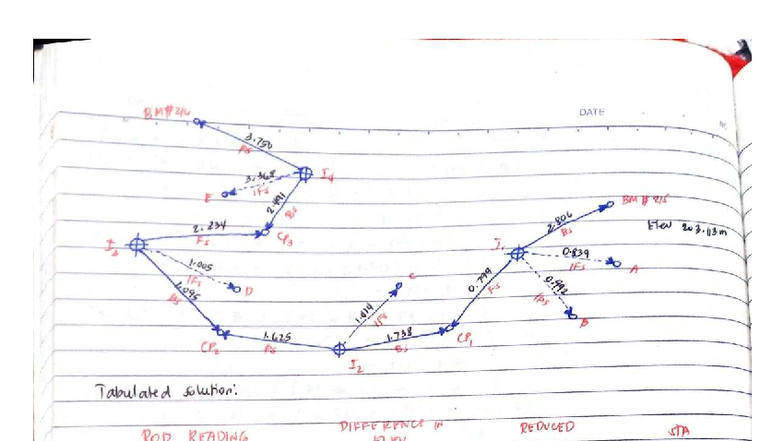 DATE
BM#216
3.750
FS
I4
3.368
IFS
E
2.491
BS
BM#215
2.806
BS
Elev 203.13m
2.234
FS
CP3
I3
I1
0.839
IFS
A
1.005
IFS
D
C
0.799
FS
0.992
IFS
B
1.095
BS
1.414
IFS
CP2
1.625
FS
1.738
BS
CP1
I2
Tabulated solution:
ROD READING
DIFFERENCE IN
ELEV
REDUCED
STA